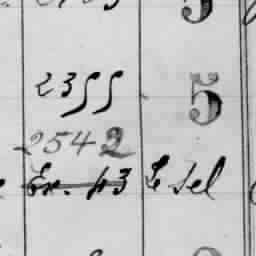 5
2355
5
2542
Ex. 43 Le Sel